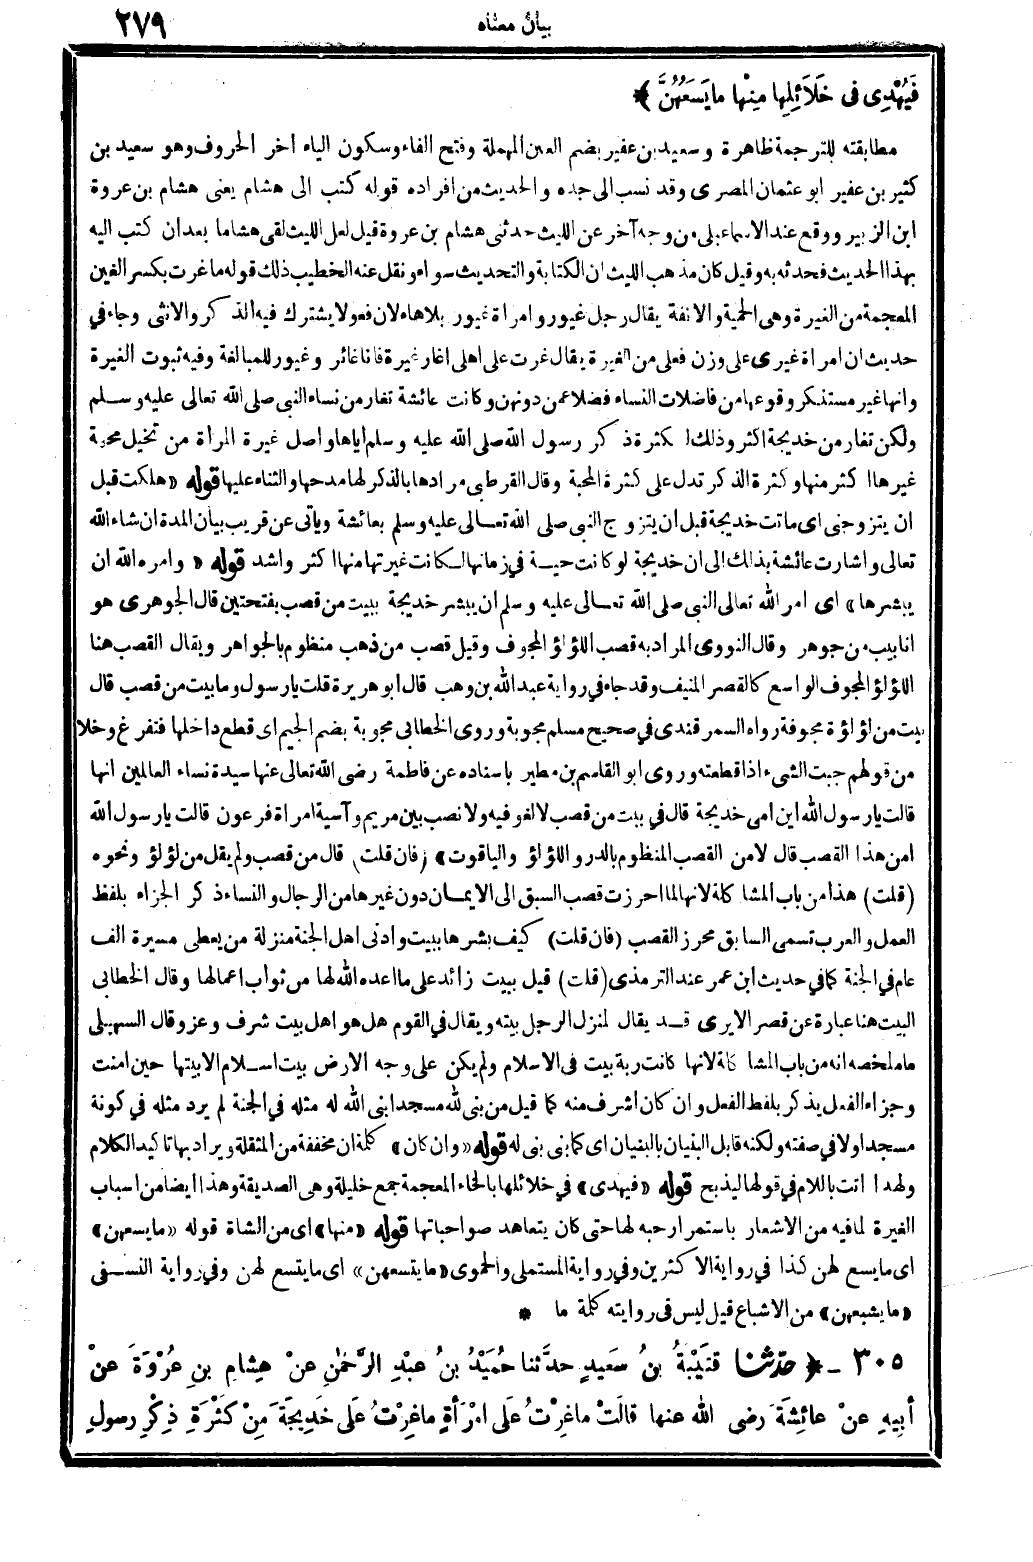 بيان معناه ٢٧٩
فَيُهْدِى فى خَلَائِلِها مِنْها ما يَسَعُهُنَّ ﴾
مطابقته للترجمة ظاهرة وسعيد بن عفير بضم العين المهملة وفتح الفاء وسكون الياء آخر الحروف وهو سعيد بن
كثير بن عفير ابو عثمان المصرى وقد نسب الى جده والحديث من افراده قوله كتب الى هشام يعنى هشام بن عروة
ابن الزبير ووقع عند الاسماعيلى من وجه آخر عن الليث حدثنى هشام بن عروة قيل لعل الليث لقى هشاما بعد ان كتب اليه
بهذا الحديث فحدثه به وقيل كان مذهب الليث ان الكتابة والتحديث سواء ونقل عنه الخطيب ذلك قوله ما غرت بكسر الغين
المعجمة من الغيرة وهى الحمية والانفة يقال رجل غيور وامرأة غيور بلا هاء لان فعولا يشترك فيه الذكر والانثى وجاء فى
حديث ان امرأة غيرى على وزن فعلى من الغيرة يقال غرت على اهلى اغار غيرة فانا غائر وغيور للمبالغة وفيه ثبوت الغيرة
وانها غير مستنكر وقوعها من فاضلات النساء فضلا عمن دونهن وكانت عائشة تغار من نساء النبى صلى الله تعالى عليه وسلم
ولكن تغار من خديجة اكثر وذلك لكثرة ذكر رسول الله صلى الله عليه وسلم اياها واصل غيرة المرأة من تخيل محبة
غيرها اكثر منها وكثرة الذكر تدل على كثرة المحبة وقال القرطبى مرادها بالذكر لها مدحها والثناء عليها قوله «هلكت قبل
ان يتزوجنى اى ماتت خديجة قبل ان يتزوج النبى صلى الله تعالى عليه وسلم بعائشة ويأتى عن قريب بيان المدة ان شاء الله
تعالى واشارت عائشة بذلك الى ان خديجة لو كانت حية فى زمانها لكانت غيرتها منها اكثر واشد قوله «وامره الله ان
يبشرها» اى امر الله تعالى النبى صلى الله تعالى عليه وسلم ان يبشر خديجة ببيت من قصب بفتحتين قال الجوهرى هو
انابيب من جوهر وقال النووى المراد به قصب اللؤلؤ المجوف وقيل قصب من ذهب منظوم بالجواهر ويقال القصب هنا
اللؤلؤ المجوف الواسع كالقصر المنيف وقد جاء فى رواية عبد الله بن وهب قال ابو هريرة قلت يا رسول وما بيت من قصب قال
بيت من لؤلؤة مجوفة رواه السمرقندى فى صحيح مسلم مجوبة وروى الخطابى مجوبة بضم الجيم اى قطع داخلها فتفرغ وخلا
من قولهم جبت الشىء اذا قطعته وروى ابو القاسم بن مطير باسناده عن فاطمة رضى الله تعالى عنها سيدة نساء العالمين انها
قالت يا رسول الله اين امى خديجة قال فى بيت من قصب لا لغو فيه ولا نصب بين مريم وآسية امرأة فرعون قالت يا رسول الله
امن هذا القصب قال لا من القصب المنظوم بالدر واللؤلؤ والياقوت» (فان قلت) قال من قصب ولم يقل من لؤلؤ ونحوه
(قلت) هذا من باب المشاكلة لانها لما احرزت قصب السبق الى الايمان دون غيرها من الرجال والنساء ذكر الجزاء بلفظ
العمل والعرب تسمى السابق محرز القصب (فان قلت) كيف بشرها ببيت وادنى اهل الجنة منزلة من يعطى مسيرة الف
عام فى الجنة كما فى حديث ابن عمر عند الترمذى (قلت) قيل ببيت زائد على ما اعده الله لها من ثواب اعمالها وقال الخطابى
البيت هنا عبارة عن قصر الا يرى قد يقال لمنزل الرجل بيته ويقال فى القوم هل هو اهل بيت شرف وعز وقال السهيلى
ما ملخصه انه من باب المشاكلة لانها كانت ربة بيت فى الاسلام ولم يكن على وجه الارض بيت اسلام الا بيتها حين امنت
وجزاء الفعل يذكر بلفظ الفعل وان كان اشرف منه كما قيل من بنى لله مسجدا بنى الله له مثله فى الجنة لم يرد مثله فى كونه
مسجدا ولا فى صفته ولكنه قابل البنيان بالبنيان اى كما بنى بنى له قوله «وان كان» كلمة ان مخففة من المثقلة ويراد بها تأكيد الكلام
ولهذا اتت باللام فى قولها ليذبح قوله «فيهدى» فى خلائلها بالخاء المعجمة جمع خليلة وهى الصديقة وهذا ايضا من اسباب
الغيرة لما فيه من الاشعار باستمرار حبه لها حتى كان يتعاهد صواحباتها قوله «منها» اى من الشاة قوله «ما يسعهن»
اى ما يسع لهن كذا فى رواية الاكثرين وفى رواية المستملى والحموى «ما يتسعهن» اى ما يتسع لهن وفى رواية النسفى
«ما يشبعهن» من الاشباع قيل ليس فى روايته كلمة ما *
٣٠٥ - ﴿ حدّثنا قتَيْبَةُ بنُ سَعِيدٍ حدَّثنا حُمَيْدُ بنُ عبْدِ الرَّحْمٰنِ عنْ هِشامِ بنِ عُرْوَةَ عنْ
أبِيهِ عنْ عائِشَةَ رضى الله عنها قالَتْ ما غِرْتُ عَلَى امْرَأةٍ ما غِرْتُ عَلَى خَدِيجَةَ مِنْ كَثْرَةِ ذِكْرِ رسولِ